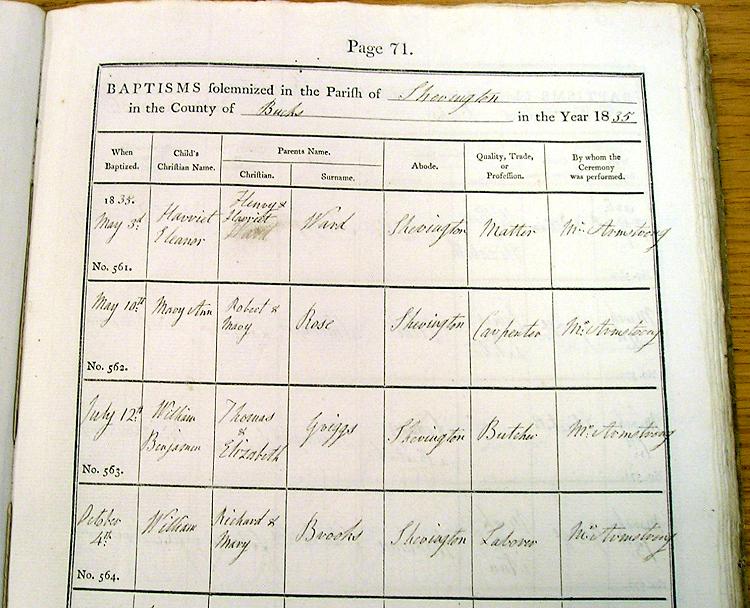 Page 71.
BAPTISMS solemnized in the Parish of Shevington
in the County of Bucks in the Year 1835
When Baptized. Child's Christian Name. Parents Name. Abode. Quality, Trade, or Profession. By whom the Ceremony was performed.
Christian. Surname.
1835. May 3d Harriet Eleanor Henry & Harriet Ward Ward Shevington Matter Mr. Armstrong
No. 561.
May 10th Mary Ann Robert & Mary Rose Shevington Carpenter Mr. Armstrong
No. 562.
July 12th William Benjamen Thomas & Elizabeth Griggs Shevington Butcher Mr. Armstrong
No. 563.
October 4th William Richard & Mary Brooks Shevington Laborer Mr. Armstrong
No. 564.